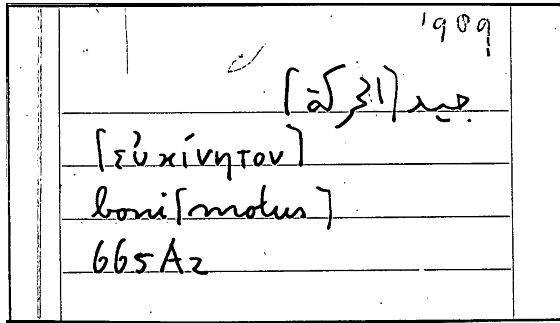 1909
جيد [الحركة]
[εὐκίνητον]
boni [motus]
665A2